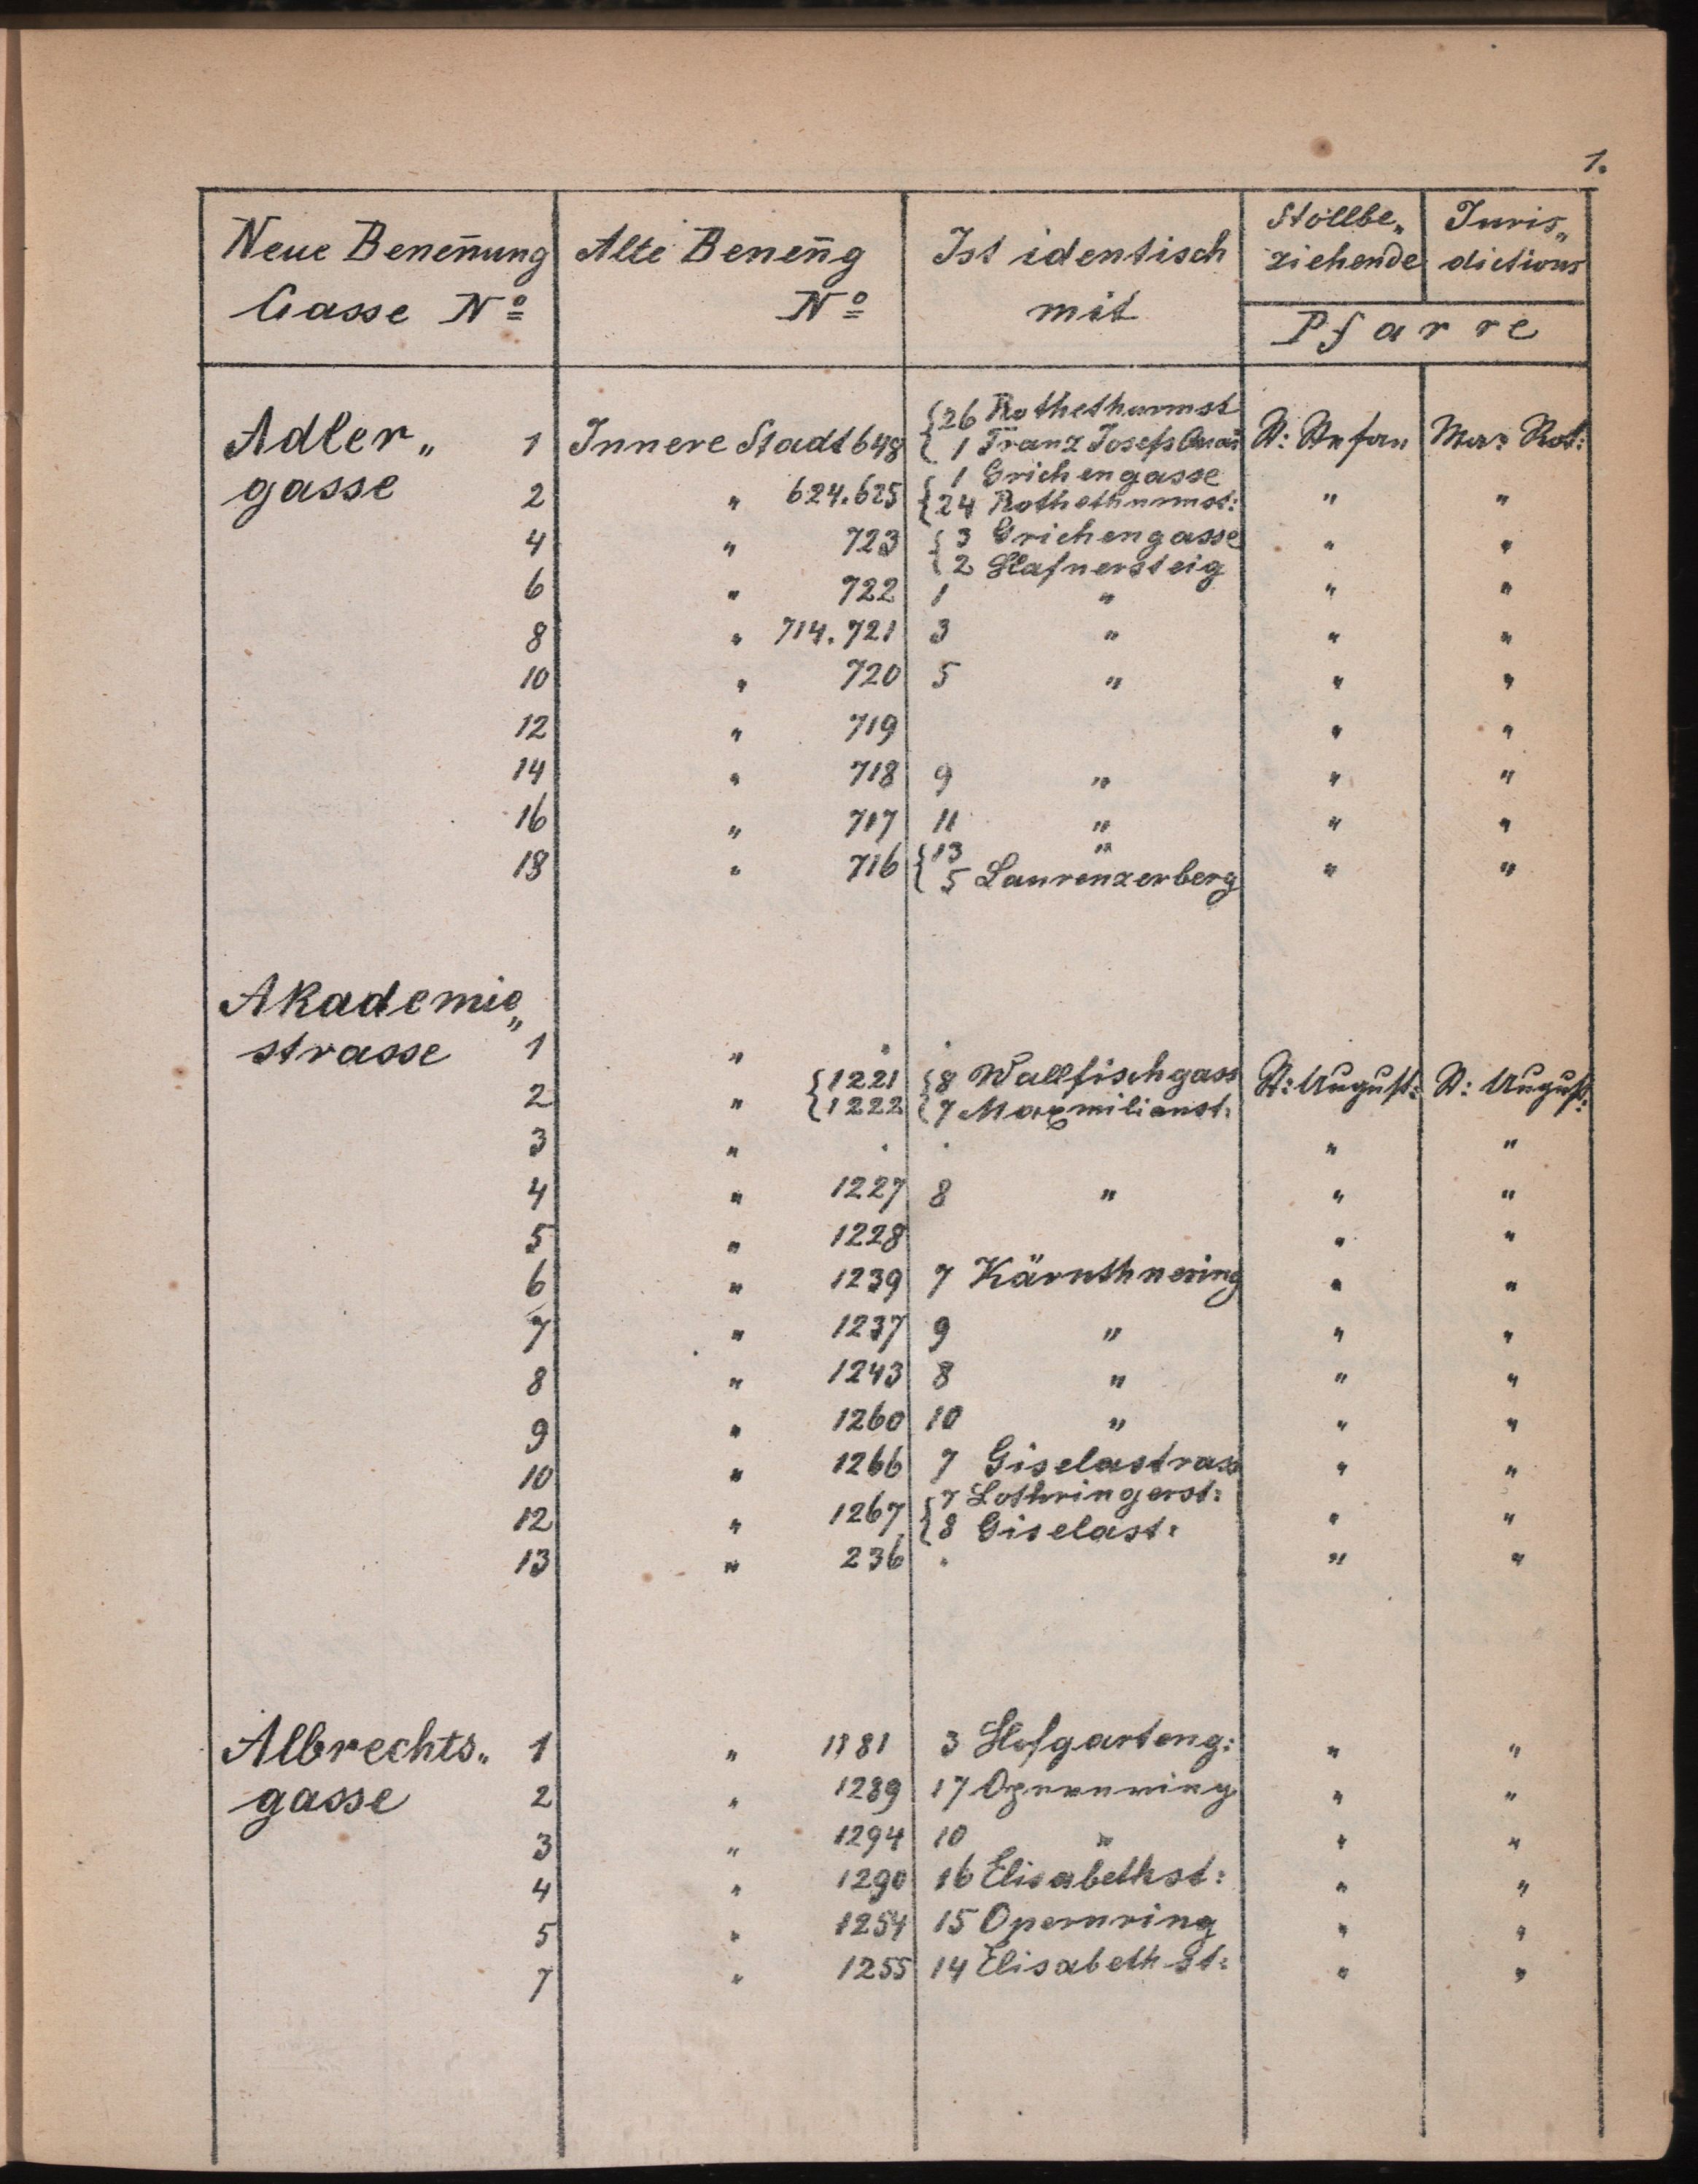 1.
Neue Beneñung Alte Beneñg Ist identisch Stollbe„ Juris„
ziehende dictions
Gasse Nº Nº mit Pfarre
Adler„ 1 Innere Stadt 648 {26 Rothethurmst St: Stefan Mar: Rot:
{1 Franz Josefs Quai
gasse 2 " 624.625 {1 Grichengasse " "
{24 Rothethurmst:
4 " 723 {3 Grichengasse " "
{2 Hafnersteig
6 " 722 1 " " "
8 " 714.721 3 " " "
10 " 720 5 " " "
12 " 719 " "
14 " 718 9 " " "
16 " 717 11 " " "
18 " 716 {13 " " "
{5 Laurenzerberg
Akademie„
strasse 1 " . .
2 " {1221 {8 Wallfischgass St: August: St: August:
{1222 {7 Maxmilianst:
3 " . . " "
4 " 1227 8 " " "
5 " 1228 " "
6 " 1239 7 Kärnthnering " "
7 " 1237 9 " " "
8 " 1243 8 " " "
9 " 1260 10 " " "
10 " 1266 7 Giselastrass " "
12 " 1267 {7 Lothringerst: " "
{8 Giselast:
13 " 236 . " "
Albrechts„ 1 " 1181 3 Hofgarteng: " "
gasse 2 " 1289 17 Opernring " "
3 " 1294 10 " " "
4 " 1290 16 Elisabethst: " "
5 " 1254 15 Opernring " "
7 " 1255 14 Elisabethst: " "